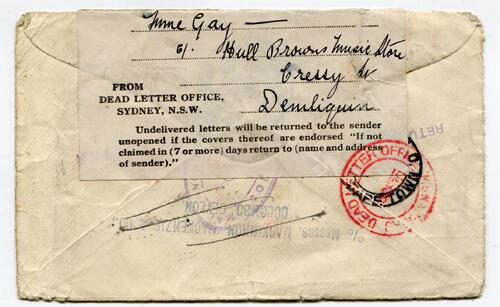 Mme Gay —
c/. Hull Browns Music Store
Cressy St
Deniliquin
FROM
DEAD LETTER OFFICE,
SYDNEY, N.S.W.
Undelivered letters will be returned to the sender
unopened if the covers thereof are endorsed "If not
claimed in (7 or more) days return to (name and address
of sender)."
RETU
DEAD LETTER OFFICE
% MESSRS. MACKINNON, MACKENZIE & CO.,
COLOMBO, CEYLON.